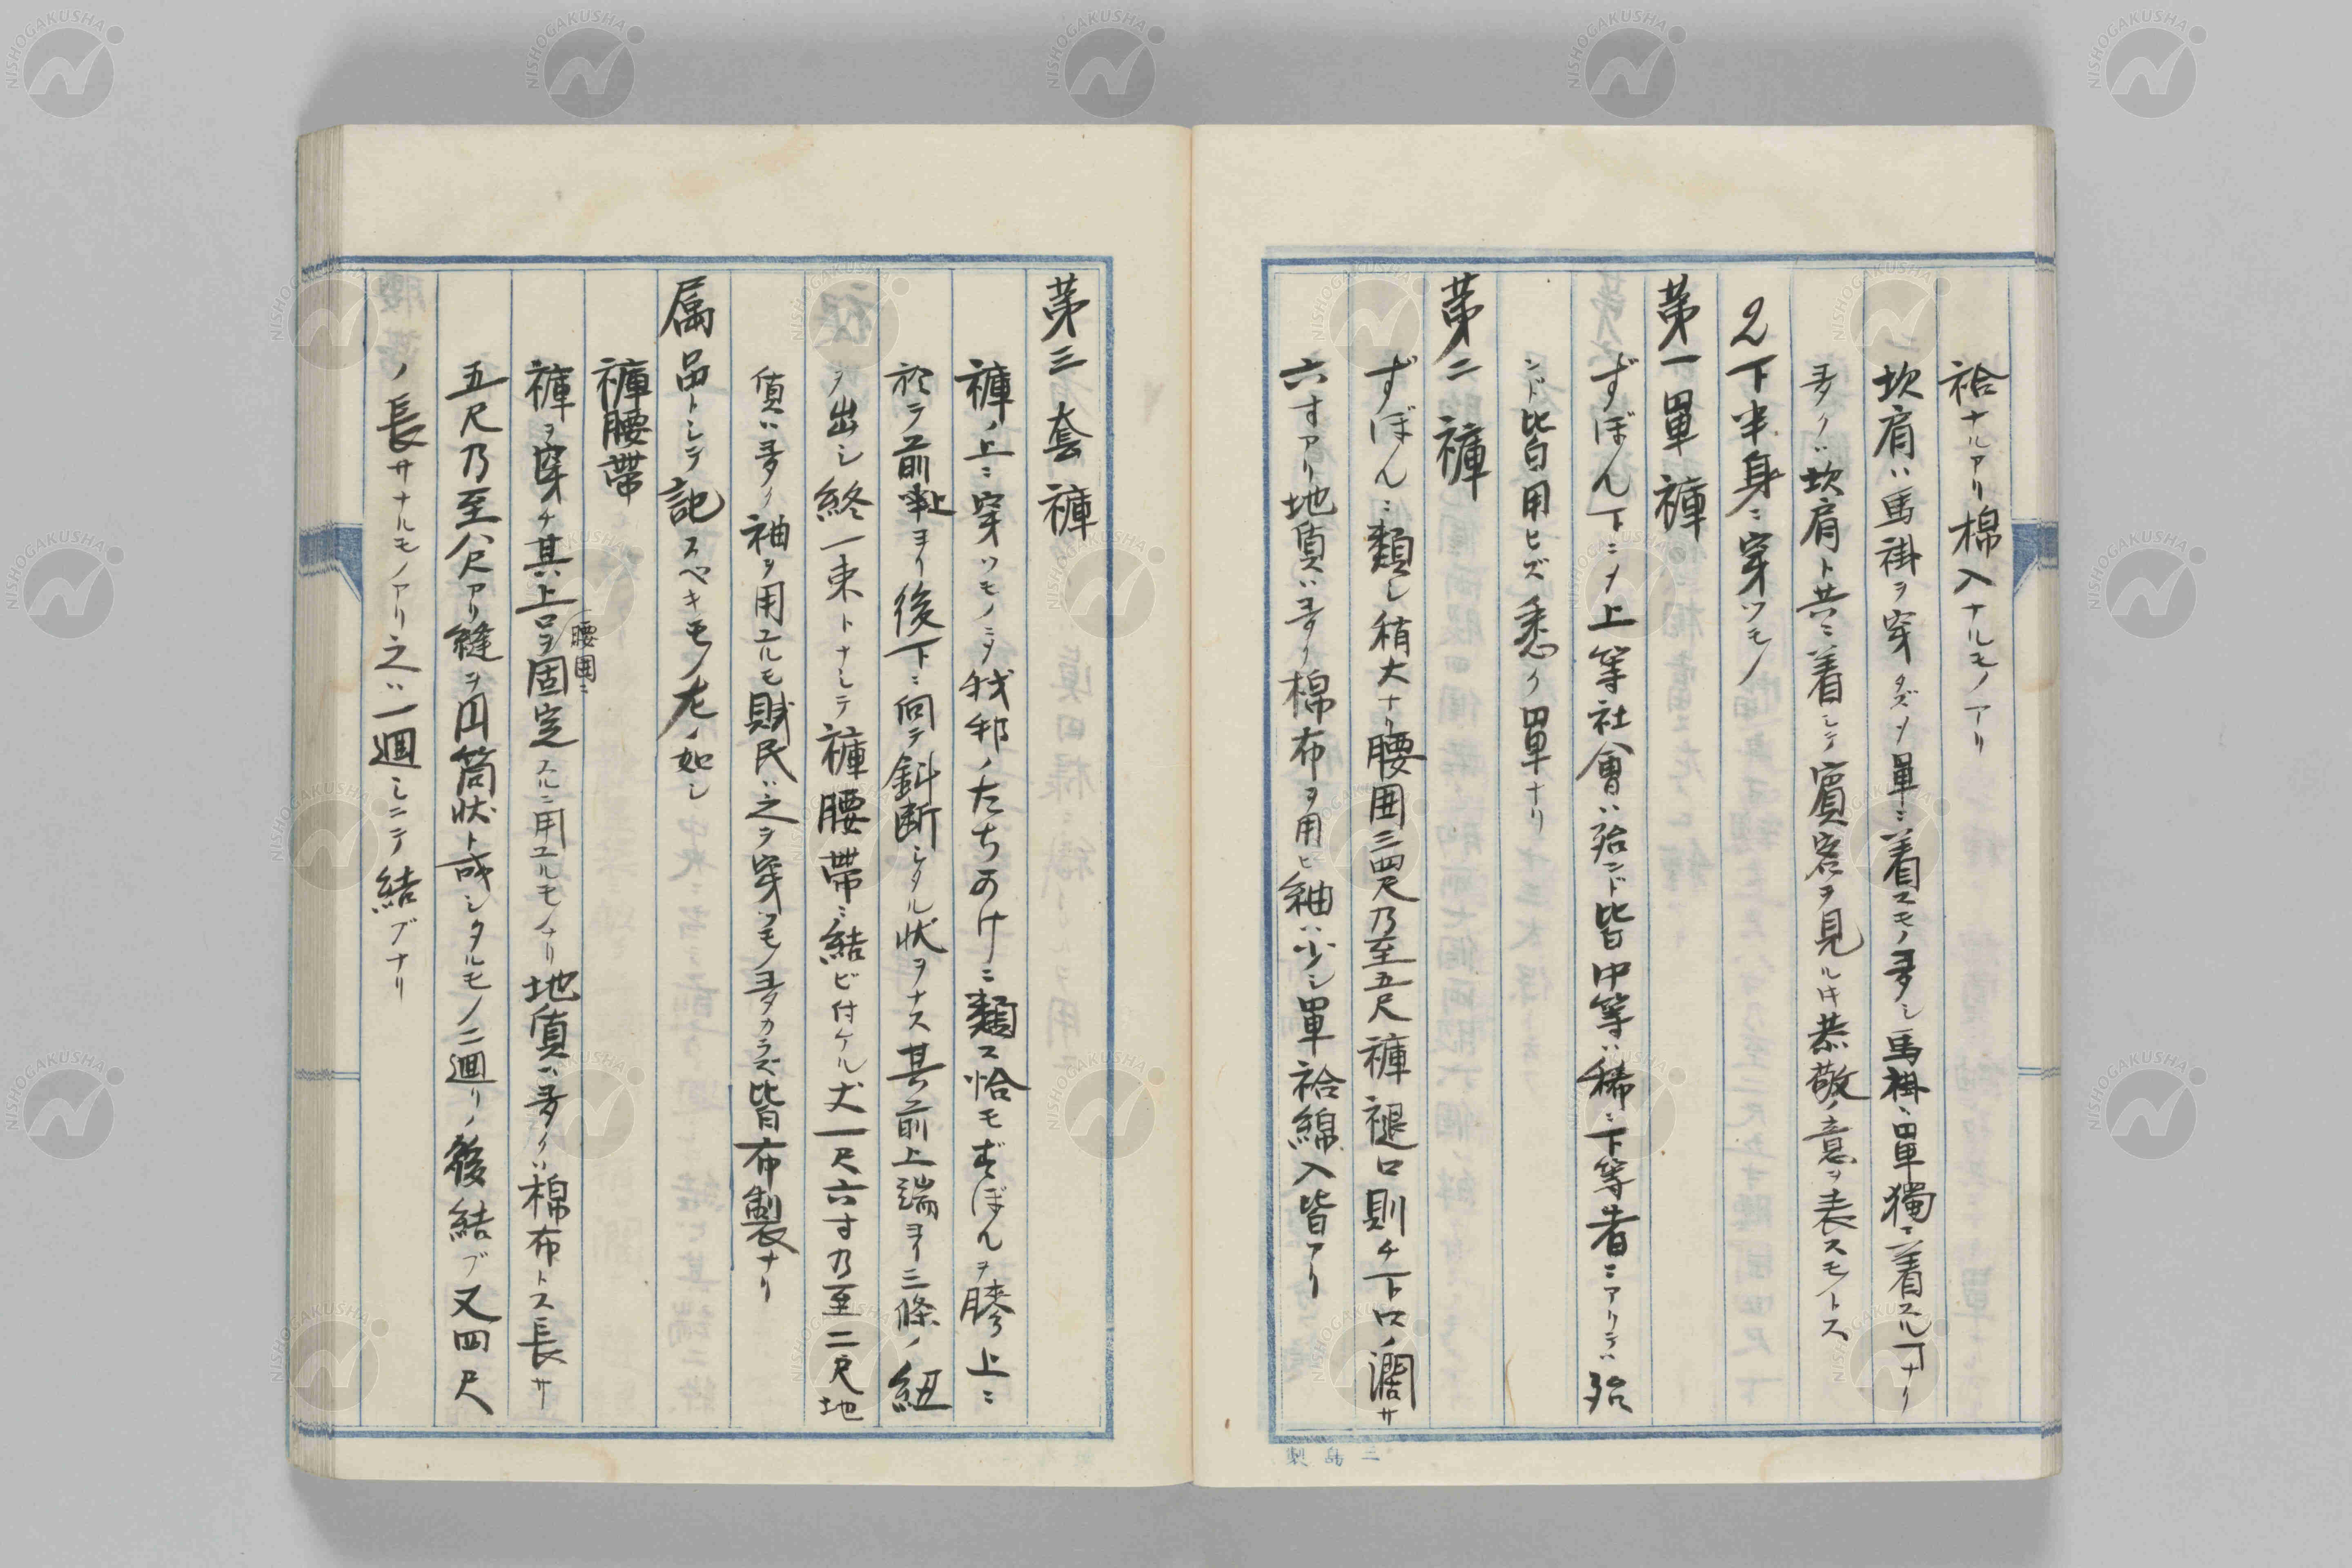 袷ナルアリ棉入ナルモノアリ
坎肩ハ馬褂ヲ穿タズノ單ニ着スモノ多シ馬褂ハ單獨ニ着スルヿナリ
多クハ坎肩ト共ニ着シテ賓客ヲ見ル𪜈恭敬ノ意ヲ表スモノトス
2下半身ニ穿ツモノ
第一單褲
ずぼん下ニメ上等社會ハ殆ンド皆中等ハ稀ニ下等者ニアリテハ殆
ンド皆用ヒズ悉ク單ナリ
第二褲
ずぼんニ類シ稍大ナリ腰囲三四尺乃至五尺褲褪口則チ下口ノ濶サ
六寸アリ地質ハ多ク棉布ヲ用ヒ紬ハ少シ單袷綿入皆アリ
三島製
第三套褲
褲ノ上ニ穿ツモノニメ我邦ノたちあけニ類ス恰モずぼんヲ膝上ニ
於テ前上ヨリ後下ニ向テ斜断シタル状ヲナス其前上端ヨリ二條ノ紐
ヲ出シ終一束トナシテ褲腰帶ニ結ビ付ケル丈一尺六寸乃至二尺地
質ハ多ク袖ヲ用ユルモ賎民ハ之ヲ穿ツモノ多カラズ皆布製ナリ
属品トシテ記スベキモノ左ノ如シ
褲腰帶
褲ヲ穿チ其上口ヲ腰囲ニ固定スルニ用ユルモノナリ地質ハ多クハ棉布トス長サ
五尺乃至八尺アリ縫ヲ円筒状ト成シタルモノ二週リノ後結ブ又四尺
ノ長サナルモノアリ之ハ一週シニテ結ブナリ